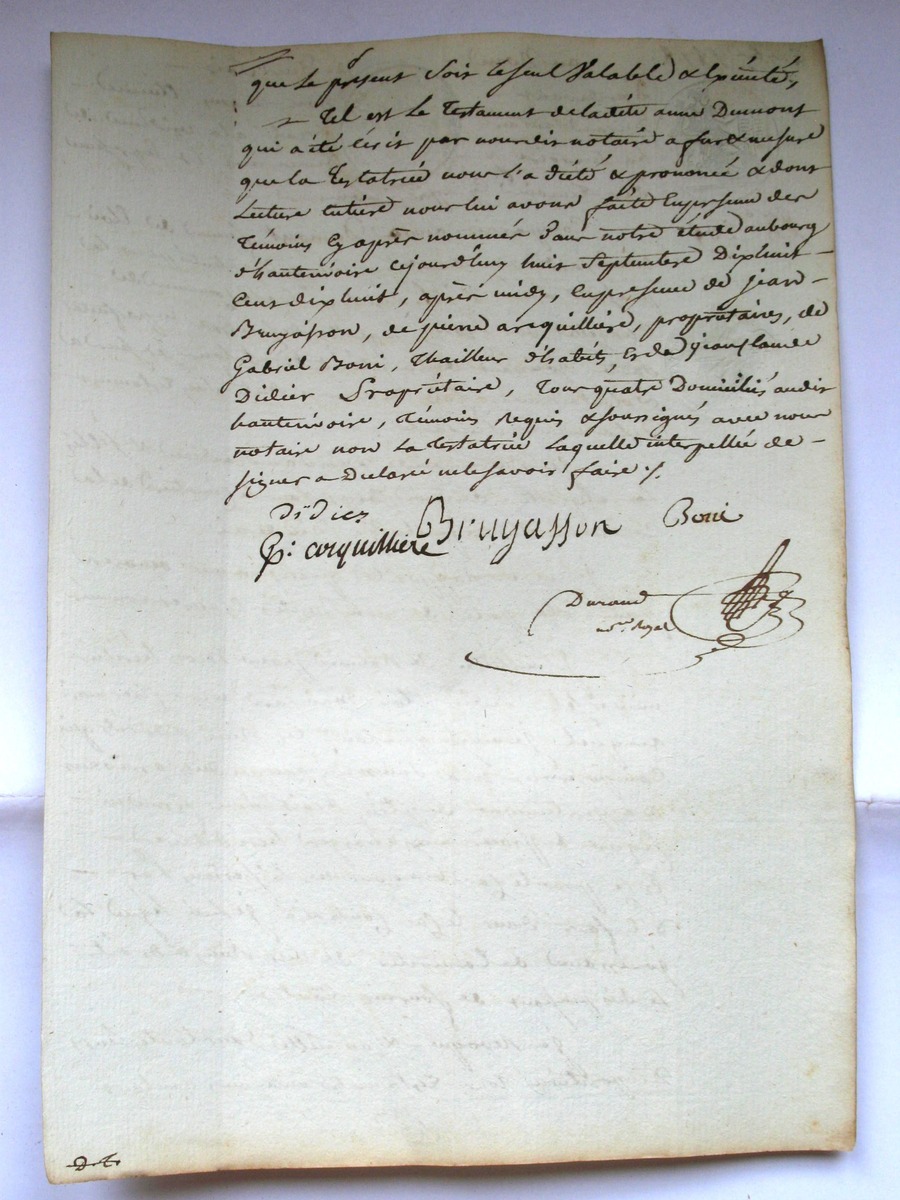 que le present soit le seul Valable & Execuité,
Tel est le Testament de ladite anne Dumont
qui a été Ecrit par nous dit notaire a fur & mesure
que la Testatrice nous l'a dicté & prononcé & dont
Lecture Entiere nous lui avons faite En presence des
Temoins Cy après nommés Dans notre étude au bourg
d'hauterivoire cejourd'huy huit Septembre Dix huit
Cent dix huit, après midy, En presence de jean
Bruyasson, de pierre arcquilliere, propriétaires, de
Gabriel Boni, Thailleur d'habits, & de jean claude
Didier Propriétaire, Tous quatre Domiciliés audit
hauterivoire, Témoins Requis & soussignés avec nous
notaire non la Testatrice Laquelle interpellée de
signer a Déclaré ne le savoir faire ./.
Didier
Bruyasson Boni
P: arquilliere
Durand
n.re Royal